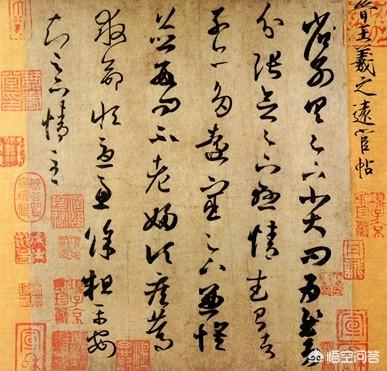 晉王羲之遠宦帖
省別具足下小大問為慰多
分張念足下懸情武昌諸
子亦多遠宦足下兼懷
並數問不老婦頃疾篤
救命恒憂慮餘粗平安
知足下情至
悟空问答